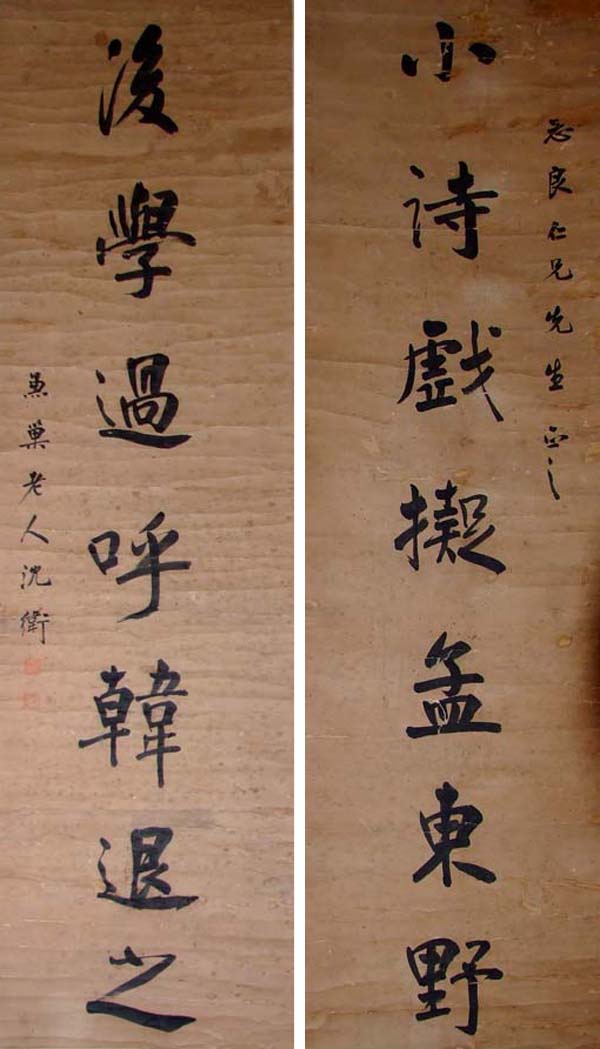 良仁兄先生正之
小詩戲擬孟東野
後學過呼韓退之
兼巢老人沈衛